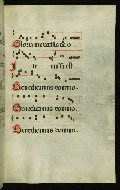 Gloria in excelsis deo
Ite missa est
Benedicamus domino
Benedicamus domino
Benedicamus domino